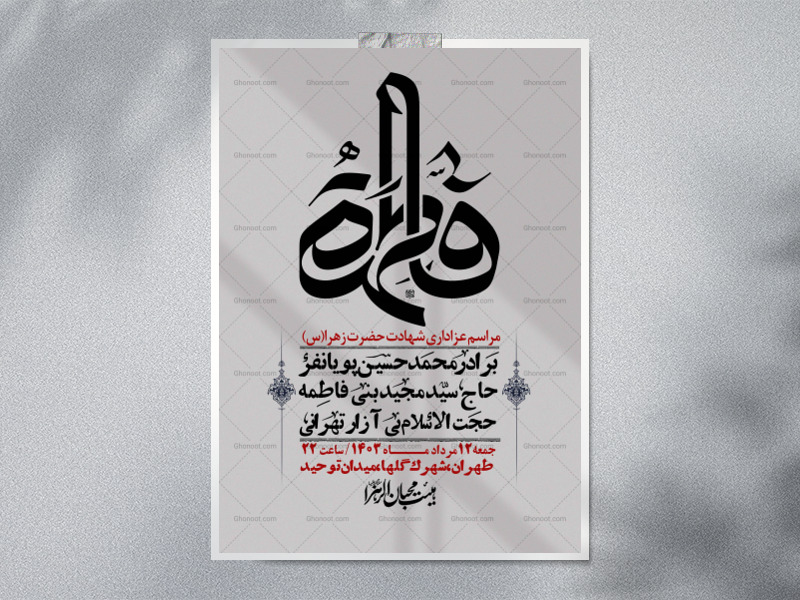 فاطمة
مراسم عزاداری شهادت حضرت زهرا(س)
برادر محمد حسین پویانفر
حاج سید مجید بنی فاطمه
حجت الاسلام بی آزار تهرانی
جمعه ۱۲ مرداد مــاه ۱۴۰۳ / ساعت ۲۲
طهران، شهرک گلها، میدان توحید
هیئت محبان الزهرا
Ghonoot.com